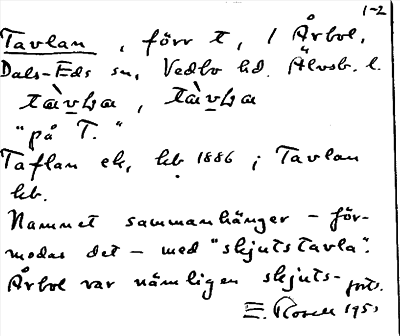 1-2
Tavlan, förr t, / Årbol,
Dals-Eds sn, Vedbo hd. Älvsb. l.
"på T."
Taflan ek, kb 1886 ; Tavlan
kb.
Namnet sammanhänger – för-
modas det – med "skjutstavla".
Årbol var nämligen skjuts- forts.
E. Rosell 1951